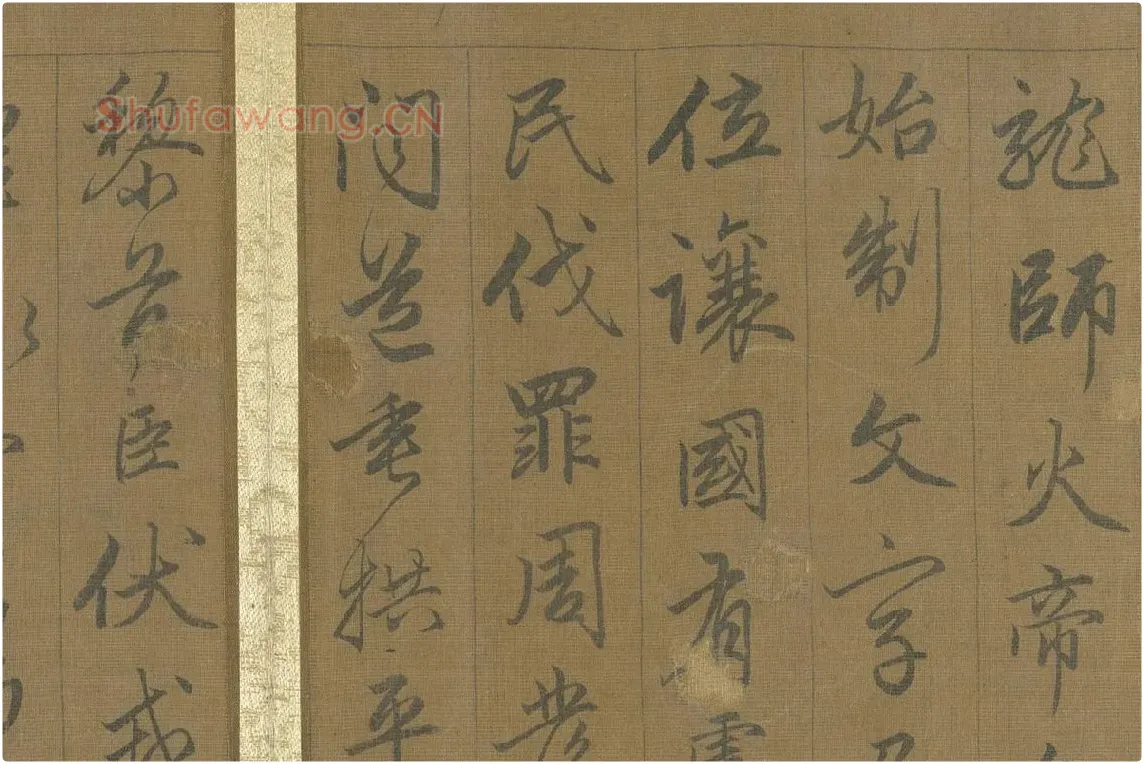 龍師火帝
始制文字乃
位讓國有虞
民伐罪周發
問道垂拱平
黎首臣伏戎
Shufawang.CN